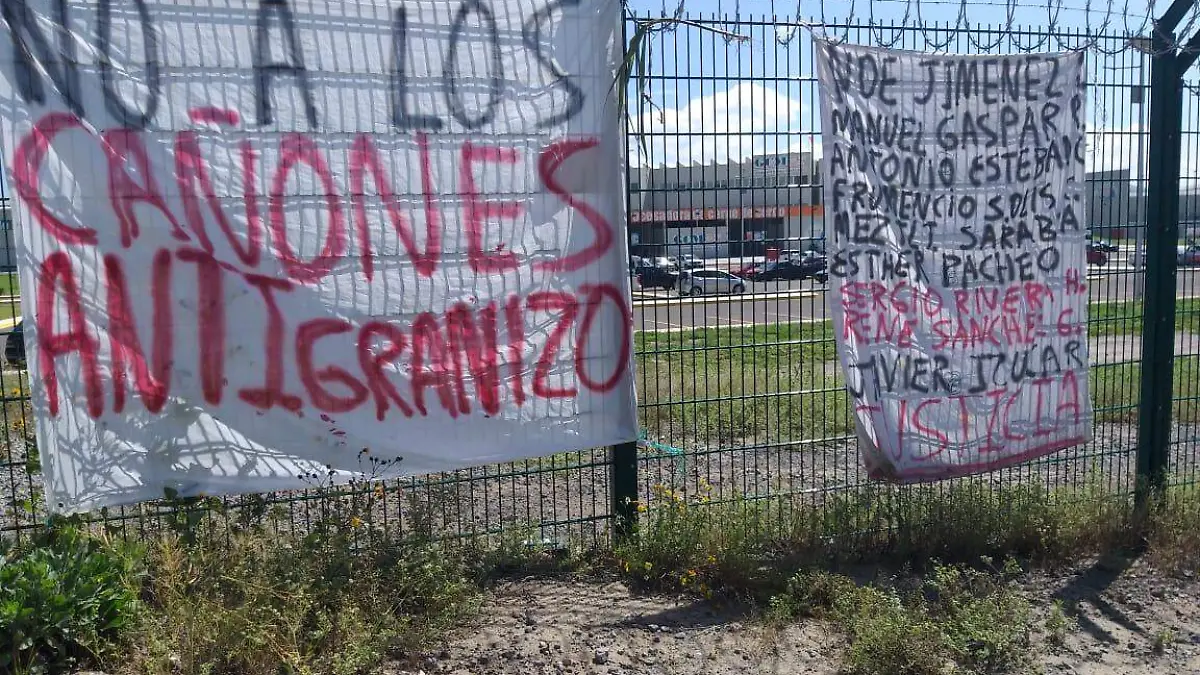 NO A LOS
CAÑONES
ANTIGRANIZO
DE JIMENEZ
MANUEL GASPAR P.
ANTONIO ESTEBAN C
FRUMENCIO SOLIS
SARABA
ESTHER PACHEO
SERGIO RIVERA H.
RENE SANCHE G.
JVIER IZUCAR
JUSTICIA